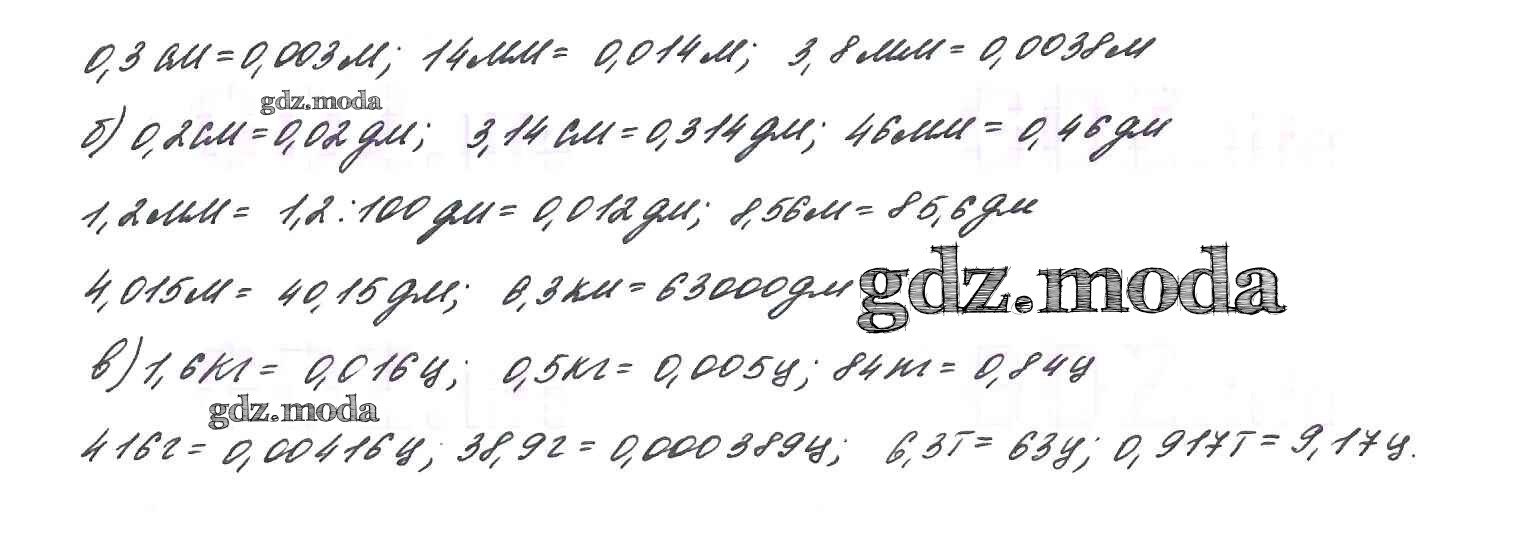 0,3 см = 0,003м; 14мм = 0,014м; 3,8мм = 0,0038м
gdz.moda
б) 0,2см = 0,02дм; 3,14см = 0,314дм; 46мм = 0,46дм
1,2мм = 1,2:100дм = 0,012дм; 8,56м = 85,6дм
4,015м = 40,15дм; 6,3км = 63000дм gdz.moda
в) 1,6кг = 0,016ц; 0,5кг = 0,005ц; 84кг = 0,84ц
gdz.moda
416г = 0,00416ц; 38,9г = 0,000389ц; 6,3т = 63ц; 0,917т = 9,17ц.